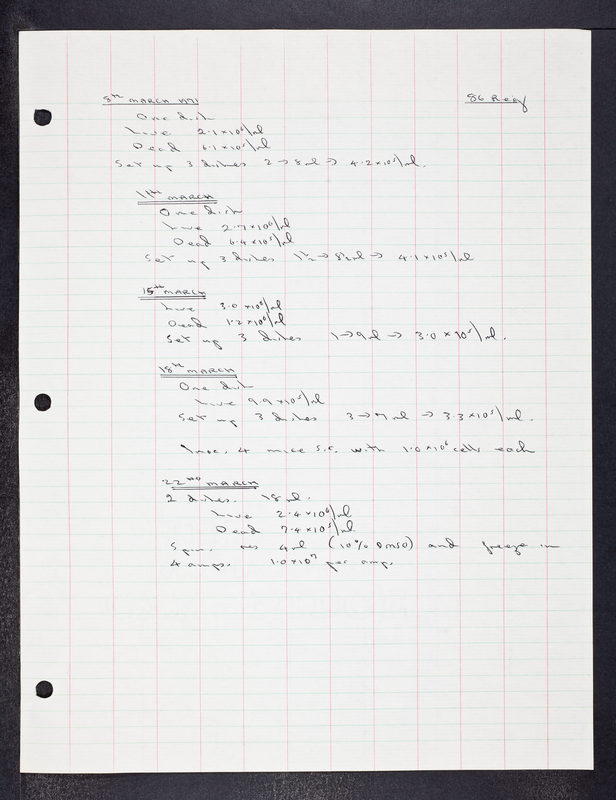 8th MARCH 1971
86 Reg
One dish
Live 2.1×10⁶/ml
Dead 6.1×10⁵/ml
Set up 3 dishes 2→8ml→ 4.2×10⁵/ml.
11th MARCH
One dish
Live 2.7×10⁶/ml
Dead 6.4×10⁵/ml
Set up 3 dishes 1½→8½ml→ 4.1×10⁵/ml
15th MARCH
Live 3.0×10⁶/ml
Dead 1.2×10⁶/ml
Set up 3 dishes 1→9ml→ 3.0×10⁵/ml.
18th MARCH
One dish
Live 9.9×10⁵/ml
Set up 3 dishes 3→7ml→ 3.3×10⁵/ml.
Inoc. 4 mice s.c. with 1.0×10⁶ cells each
22nd MARCH
2 dishes. 18ml.
Live 2.4×10⁶/ml
Dead 7.4×10⁵/ml
Spin. res 4ml (10% DMSO) and freeze in
4 amps. 1.0×10⁷ per amp.